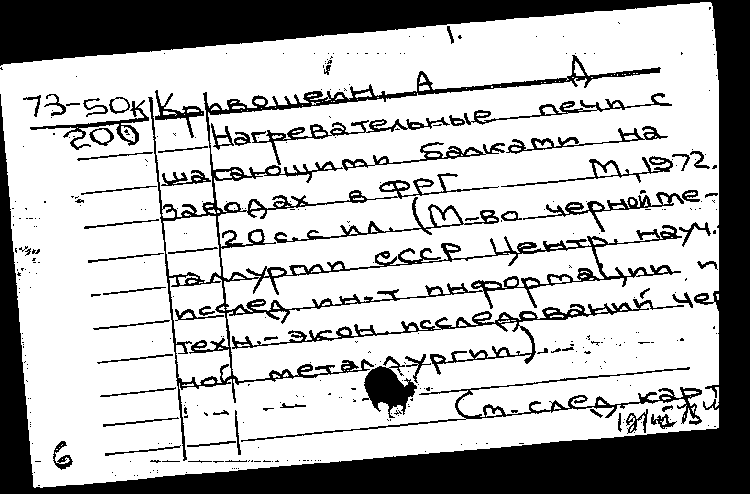 1.
73-50к Кривошеин, А А
200 Нагревательные печи с
шагающими балками на
заводах в ФРГ М., 1972.
20с. с ил. (М-во черной ме-
таллургии СССР. Центр. науч.
исслед. ин-т информации и
техн.-экон. исследований чер
ной металлургии.)
(т. след. карт
6